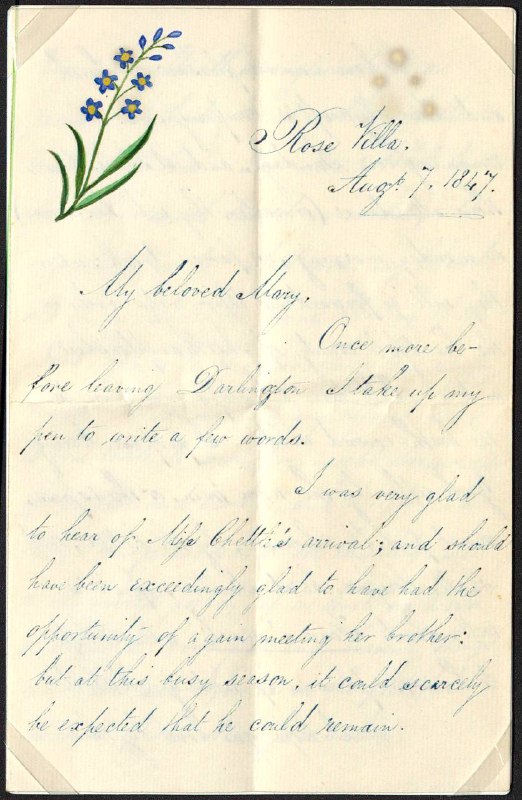 Rose Villa.
Augt. 7. 1847.
My beloved Mary,
Once more be-
fore leaving Darlington I take up my
pen to write a few words.
I was very glad
to hear of Miss arrival; and should
have been exceedingly glad to have had the
opportunity of again meeting her brother:
but at this busy season, it could scarcely
be expected that he could remain.